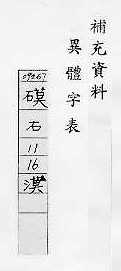 補充資料
異體字表
09267
磆
石
11
16
漠